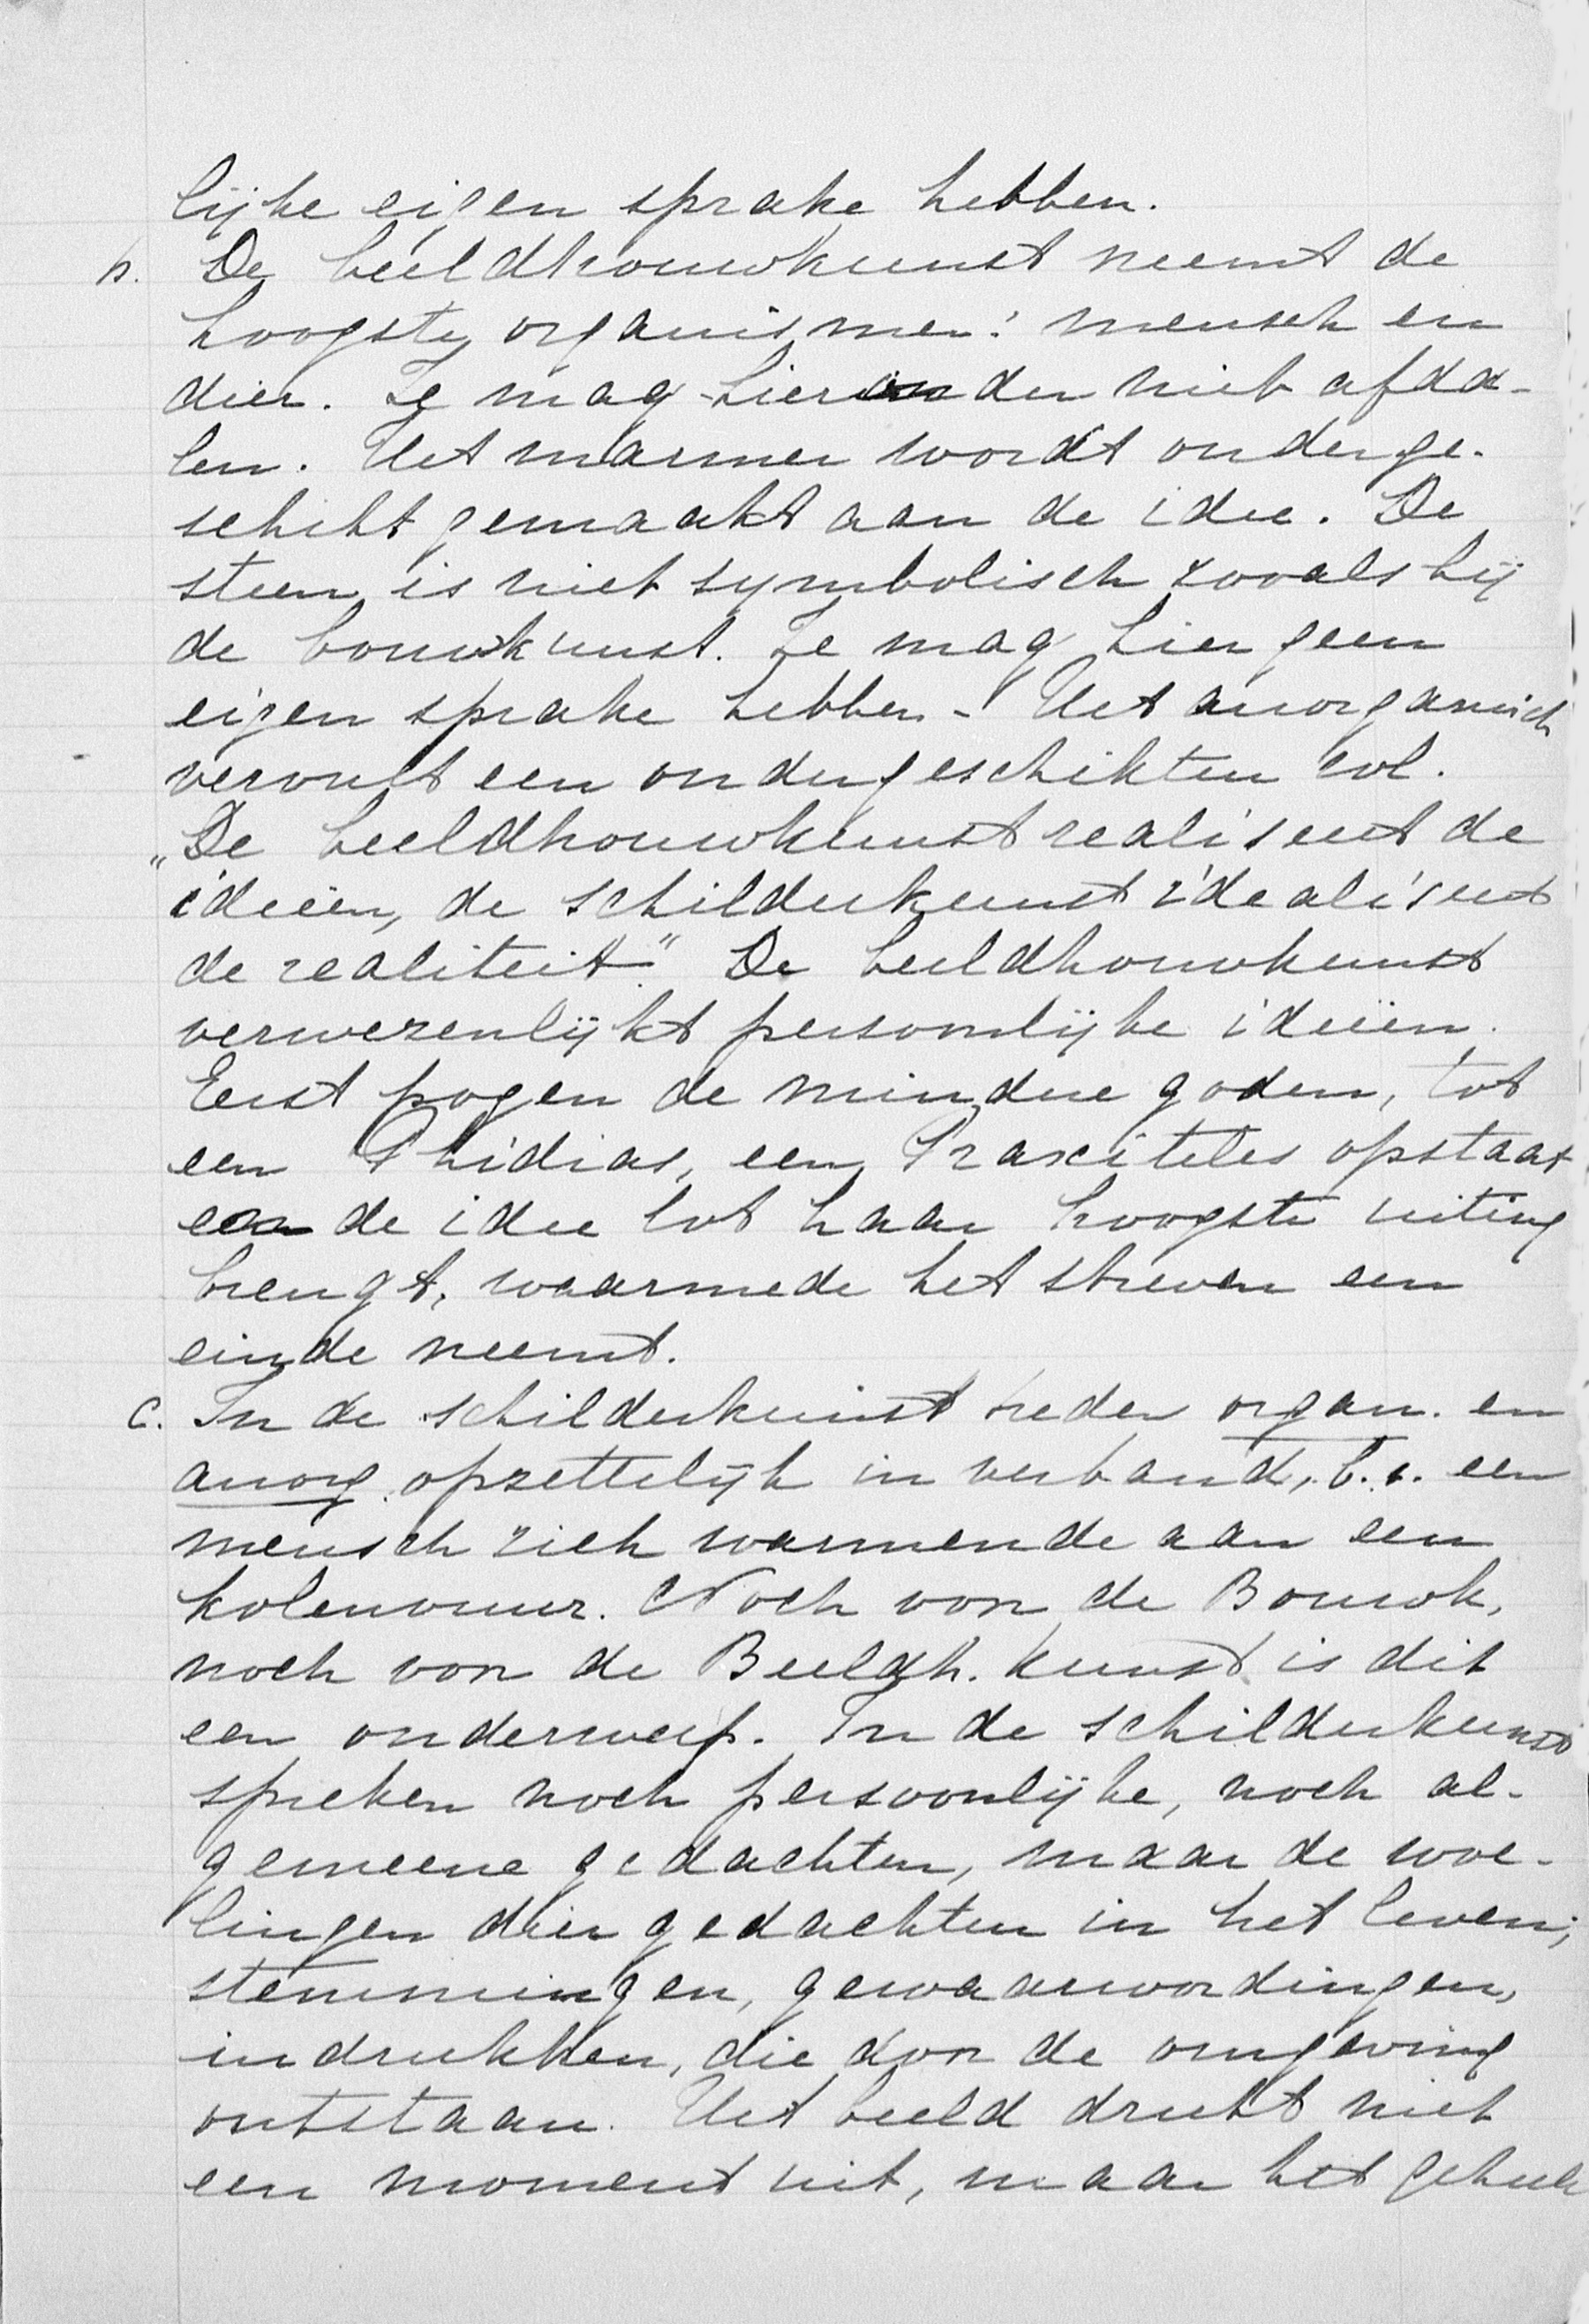 lijke eigen sprake hebben.
b. De beeldhouwkunst neemt de
hoogste organismen: mensch en
dier. Ze mag hieronder niet afda-
len. Het marmer wordt onderge-
schikt gemaakt aan de idee. De
steen is niet symbolisch zooals bij
de bouwkunst. Ze mag hier geen
eigen sprake hebben - Het anorganisch
vervult een ondergeschikten rol.
"De beeldhouwkunst realiseert de
ideeën, de schilderkunst idealiseert
de realiteit." De beeldhouwkunst
verwezenlijkt persoonlijke ideeën.
Eerst pogen de mindere goden, tot
een Phidias, een Praxiteles opstaat
en de idee tot haar hoogste uiting
brengt, waarmede het streven een
einde neemt.
c. In de schilderkunst treden organ. en
anorg. opzettelijk in verband, b.v. een
mensch zich warmende aan een
kolenvuur. Noch voor de Bouwk,
noch voor de Beeldh. kunst is dit
een onderwerp. In de schilderkunst
spreken noch persoonlijke, noch al-
gemeene gedachten, maar de woe-
lingen dier gedachten in het leven;
stemmingen, gewaarwordingen,
indrukken, die door de omgeving
ontstaan. Het beeld drukt niet
een moment uit, maar het geheele